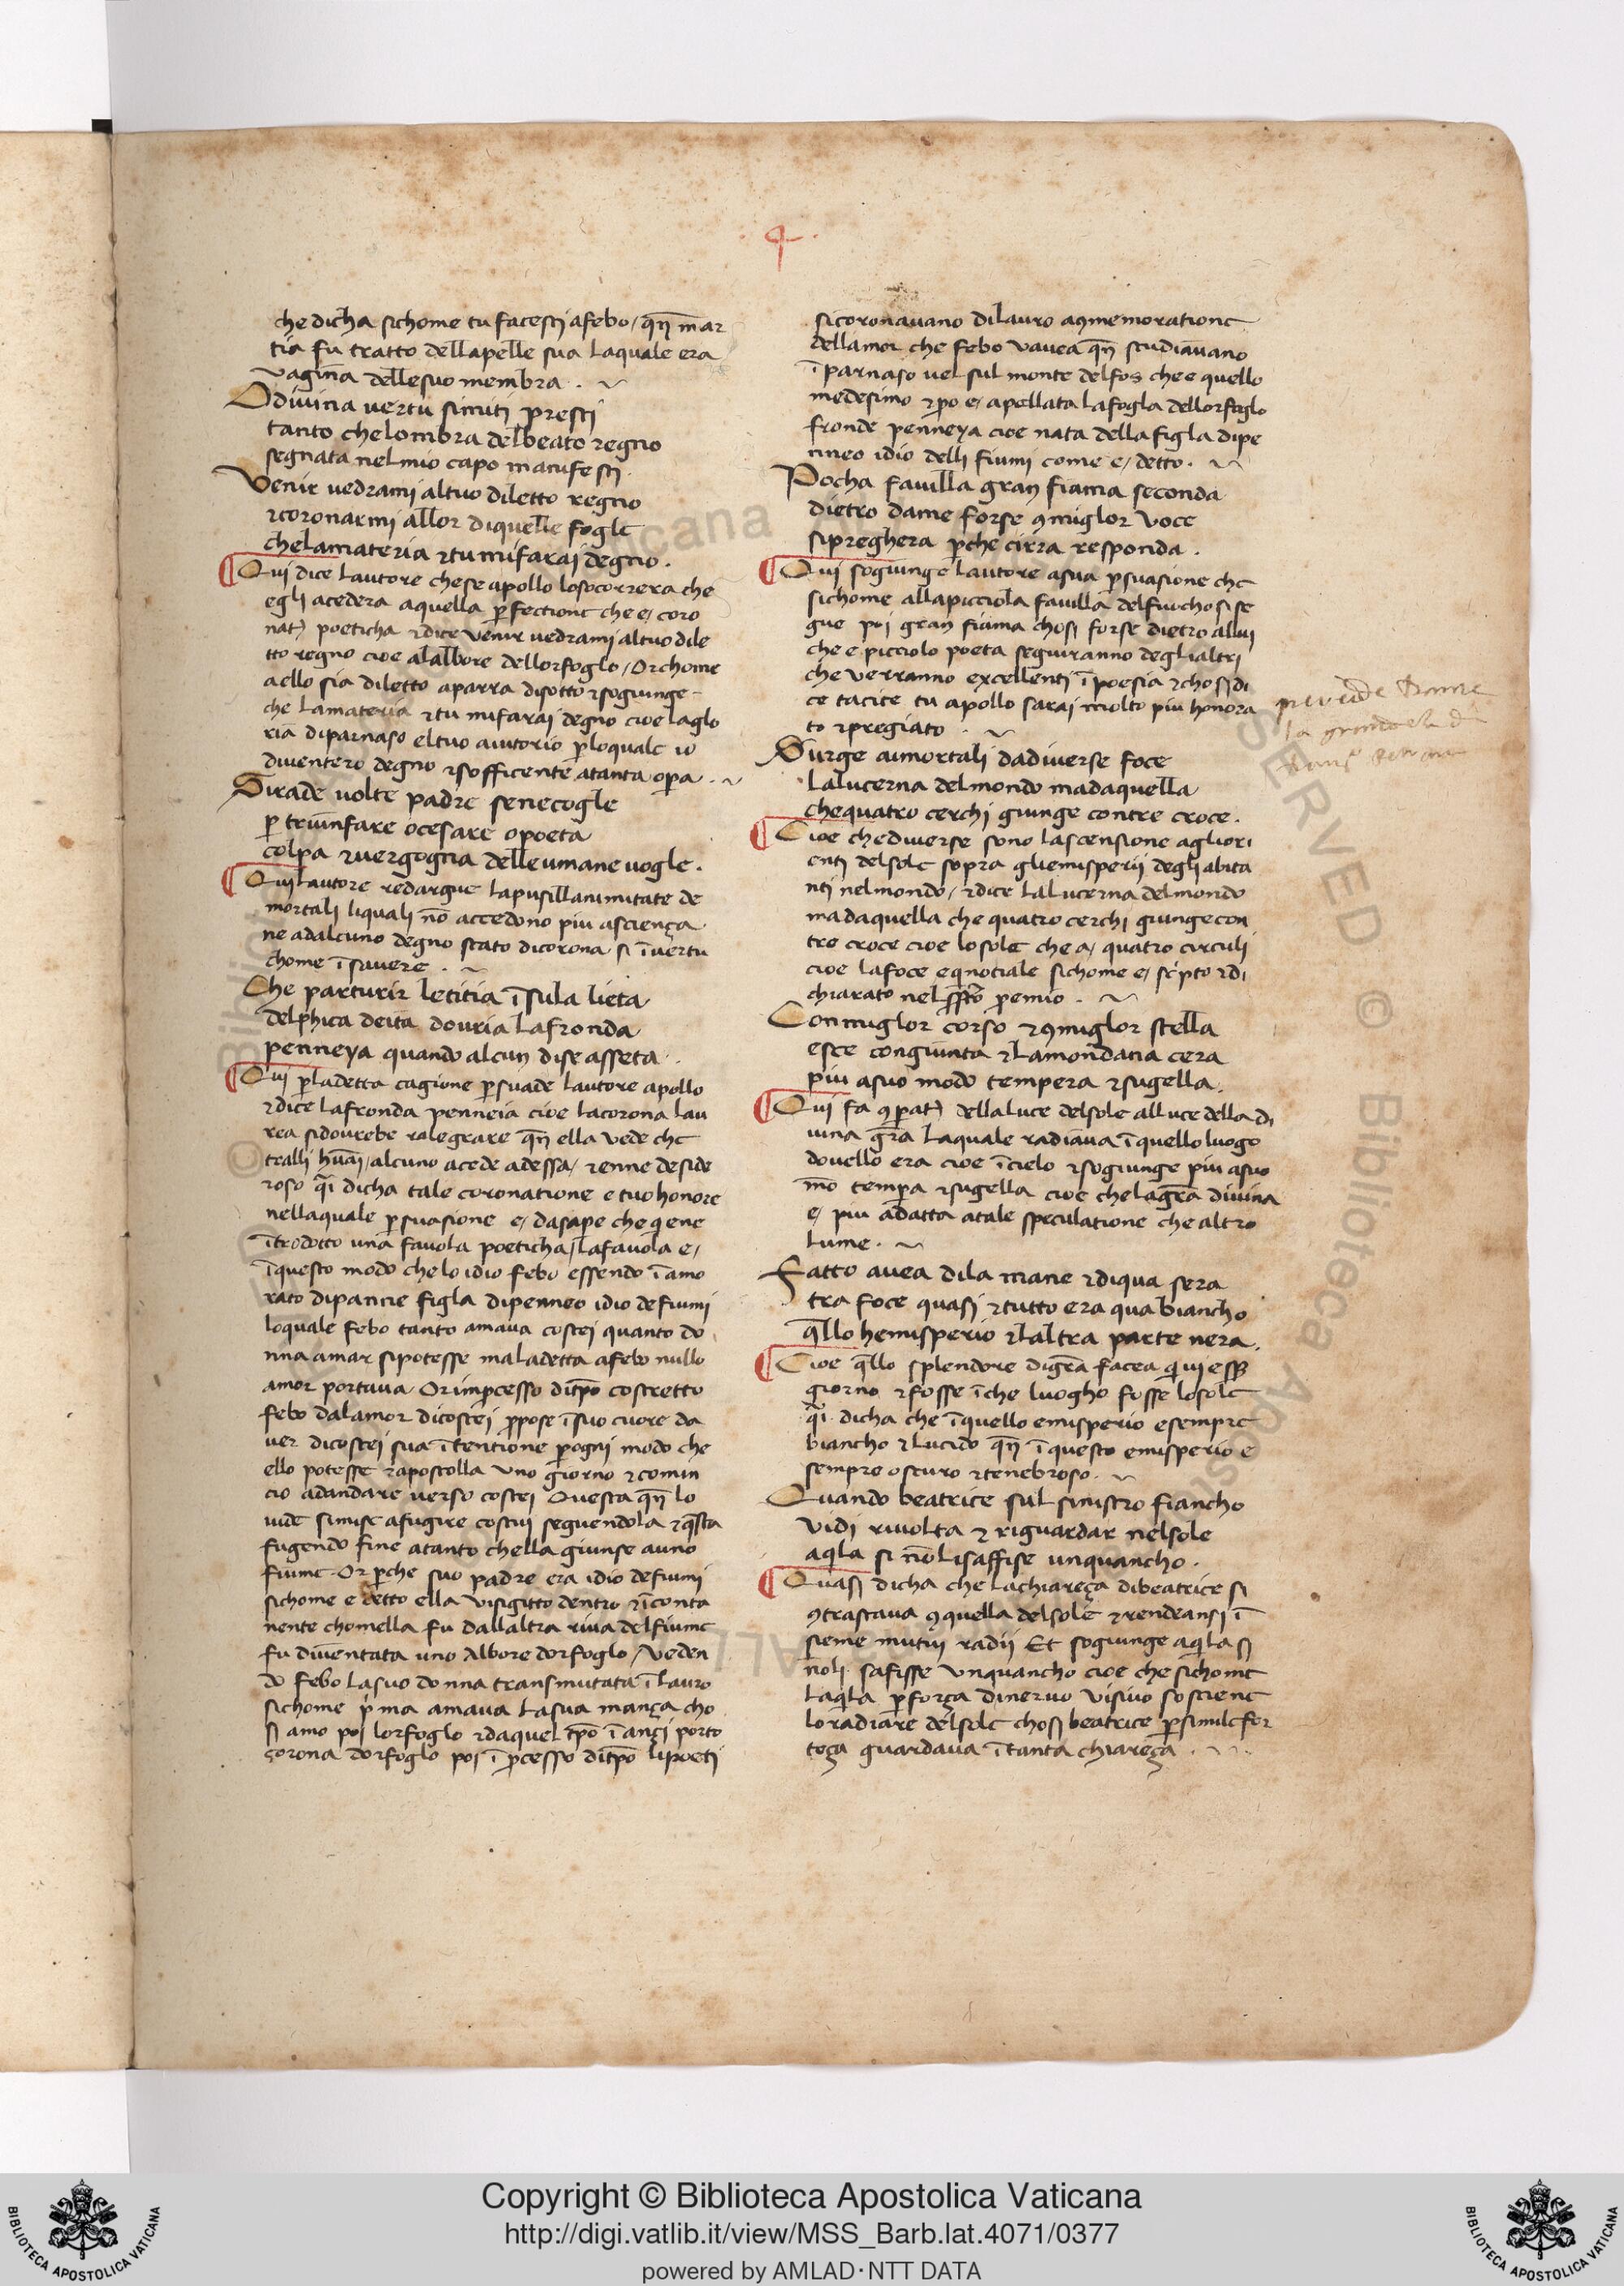 .q.
che dicha sichome tu facesti a febo / qn̄ mar
tia fu tratto dellapelle sua laquale era
vagina dellesuo membra .
O divina vertu simiti presti
tanto chelombra delbeato regno
segnata nelmio capo manifesti .
Venir vedrami altuo diletto regno
⁊coronarmi allor diquelle fogle
chelamateria ⁊tu mifarai degno .
Qui dice lautore chese apollo losocorrera che
egli acedera aquella ꝑfectione che e / coro
nat) poeticha ⁊dice venir vedrami altuo dile
tto regno cioe alalbore dellorfoglo / Or chome
aello sia diletto aparra disotto ⁊sogiunge
che lamateria ⁊tu mifarai degno cioe laglo
ria diparnaso eltuo aiutorio ꝑloquale io
diventero degno ⁊sofficente atanta oꝑa .
Sirade volte padre senecogle
ꝑ triunfare ocesare opoeta
colpa ⁊vergogna delleumane vogle .
Qui lautore redargue lapusillanimitate de
mortali liquali nō accedono piu asciença
ne adalcuno degno stato dicorona si ī vertu
chome ī scrivere .
Che parturir letitia ī sula lieta
delphica deita douria lafronda
penneya quando alcun dise asseta .
Qui ꝑladetta cagione ꝑsuade lautore apollo
⁊dice lafronda penneia cioe lacorona lau
rea sidourebe ralegrare qn̄ ella vede che
tralli hūai / alcuno acede adessa / ⁊enne deside
roso q̄i dicha tale coronatione e tuo honore
nellaquale ꝑsuasione e / dasape che qi ene
ītrodotto una favola poeticha / lafavola e /
ī questo modo chelo idio febo essendo ī amo
rato dipanne figla dipenneo idio defiumi
loquale febo tanto amava costei quanto do
nna amar sipotesse maladetta afebo nullo
amor portava Or imꝓcesso ditpō costretto
febo dalamor dicostei ꝓpose ī suo cuore da
ver dicostei sua ītentione ꝑogni modo che
ello potesse ⁊apostolla uno giorno ⁊comin
cio adandare verso costei Questa qn̄ lo
vide simise afugire costui seguendola ⁊q̄sta
fugendo fine atanto chella giunse auno
fiume . Or ꝑche suo padre era idio defiumi
sichome e detto ella visigitto dentro ⁊ īconta
nente chomella fu dallaltra riva delfiume
fu diventata uno albore dorfoglo / Veden
do febo lasuo donna transmutata ī lauro
sichome pima amava lasua mança cho
si amo poi lorfoglo ⁊daquel tpō ī ançi porto
corona dorfoglo poi ī ꝓcesso ditpō lipoeti
sicoronavano dilauro aꝯmemoratione
dellamor che febo vavea qn̄ studiavano
ī parnaso vel sul monte delfos che e quello
medesimo ⁊ꝑo e / apellata lafogla dellorfoglo
fronde penneya cioe nata della figla dipe
nneo idio delli fiumi come e / detto .
Pocha favilla gran fiama seconda
dietro dame forse ꝯmiglor voce
sipreghera ꝑche cirra responda .
Qui sogiunge lautore asua ꝑsuasione che
sichome allapicciola favilla delfuocho si se
gue poi gran fiama chosi forse dietro allui
che e picciolo poeta seguiranno deglialtri
che verranno excellenti ī poesia ⁊chosi di
ce tacite tu apollo sarai molto piu honora
to ⁊pregiato .
Surge aimortali dadiverse foce
lalucerna delmondo madaquella
chequatro cerchi giunge contre croce .
Cioe chediverse sono lascensione agliori
enti delsole sopra gliemisperii degli abita
nti nelmondo / ⁊dice lalucerna delmondo
madaquella che quatro cerchi giunge con
tre croce cioe losole che a / quatro circuli
cioe lafoce eqinotiale sichome e / scipto ⁊di
chiarato nel ꝓemio .
Conmiglor corso ⁊ꝯmiglor stella
esce congiunta ⁊lamondana cera
piu asuo modo tempera ⁊sugella .
Qui fa ꝯꝑat) dellaluce delsole alluce della di
vina grā laquale radiava ī quello luogo
dovello era cioe ī cielo ⁊sogiunge piu asuo
mō tempa ⁊sugella cioe chelagrā divina
e / piu adatta atale speculatione che altro
lume .
Fatto avea dila mane ⁊diqua sera
tra foce quasi ⁊tutto era qua biancho
q̄llo hemisperio ⁊laltra parte nera .
Cioe q̄llo splendore digrā facea qivi
giorno ⁊fosse ī che luogho fosse losole
q̄i dicha che ī quello emisperio esempre
biancho ⁊lucido qn̄ ī questo emisperio e
sempre oscuro ⁊tenebroso .
Quando beatrice sul sinistro fiancho
vidi rivolta ⁊ riguardar nelsole
aqila si nō lisaffise unquancho .
Quasi dicha che lachiareça dibeatrice si
ꝯtrastava ꝯquella delsole ⁊rendeansi ī
sieme mutui radii Et sogiunge aqila si
nōli safisse unquancho cioe che sichome
laqila ꝑforça dinervo visivo sostiene
loradiare delsole chosi beatrice ꝑsimile for
teça guardava ī tanta chiareça .
Copyright © Biblioteca Apostolica Vaticana
http://digi.vatlib.it/view/MSS_Barb.lat.4071/0377
powered by AMLAD·NTT DATA
BIBLIOTECA APOSTOLICA VATICANA
BIBLIOTECA APOSTOLICA VATICANA